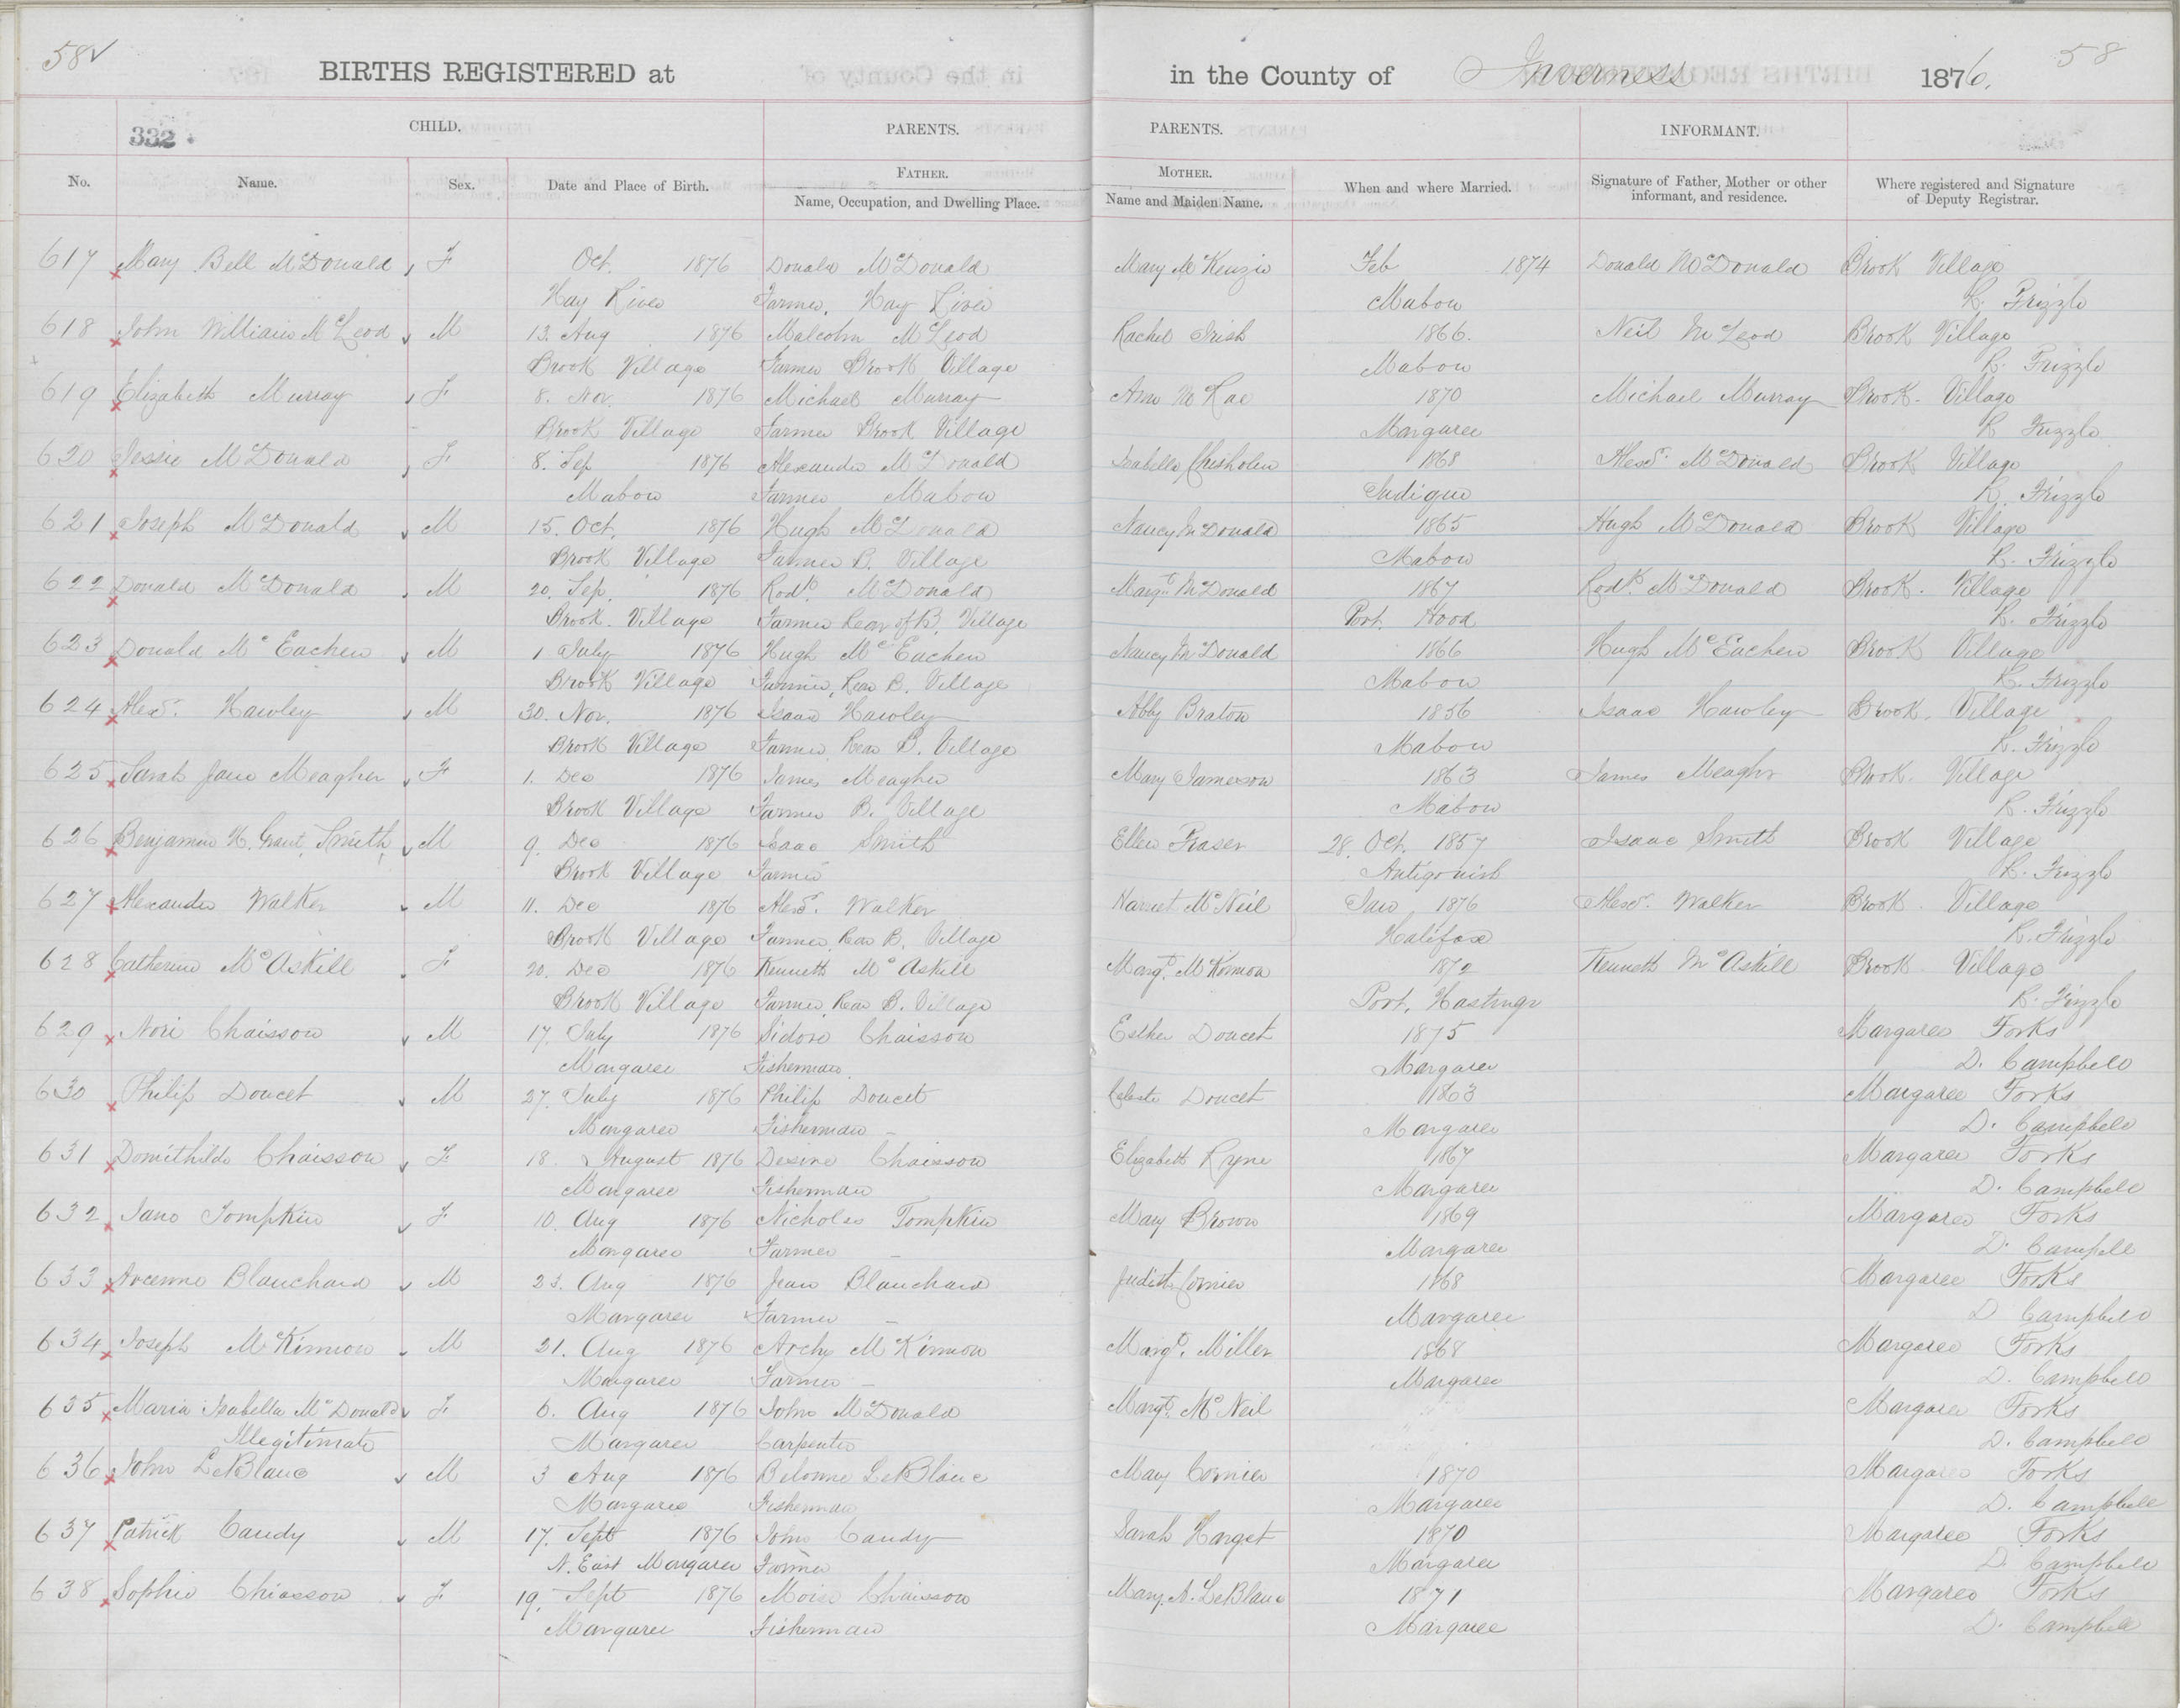 58✓ BIRTHS REGISTERED at in the County of Inverness 1876. 58
332 CHILD. PARENTS. PARENTS. INFORMANT.
No. Name. Sex. Date and Place of Birth. FATHER. Name, Occupation, and Dwelling Place. MOTHER. Name and Maiden Name. When and where Married. Signature of Father, Mother or other informant, and residence. Where registered and Signature of Deputy Registrar.
617 Mary Bell McDonald F Oct. 1876 Donald McDonald Mary McKenzie Feb 1874 Donald McDonald Brook Village
Hay River Farmer, Hay River Mabou L. Frizzle
618 John William McLeod M 13. Aug 1876 Malcolm McLeod Rachel Irish 1866. Neil McLeod Brook Village
Brook Village Farmer Brook Village Mabou L. Frizzle
619 Elizabeth Murray F 8. Nov. 1876 Michael Murray Ann McRae 1870 Michael Murray Brook Village
Brook Village Farmer Brook Village Margaree L. Frizzle
620 Jessie McDonald F 8. Sep 1876 Alexander McDonald Isabella Chisholm 1868 Alexr. McDonald Brook Village
Mabou Farmer Mabou Judique L. Frizzle
621 Joseph McDonald M 15. Oct. 1876 Hugh McDonald Nancy McDonald 1865 Hugh McDonald Brook Village
Brook Village Farmer B. Village Mabou L. Frizzle
622 Donald McDonald M 20. Sep. 1876 Rodk. McDonald Margt. McDonald 1867 Rodk. McDonald Brook. Village
Brook. Village Farmer Rear of B. Village Port. Hood L. Frizzle
623 Donald McEachen M 1 July 1876 Hugh McEachen Nancy McDonald 1866 Hugh McEachen Brook Village
Brook Village Farmer, Rear B. Village Mabou L. Frizzle
624 Alexr. Hawley M 30. Nov. 1876 Isaac Hawley Abby Braton 1856 Isaac Hawley Brook. Village
Brook Village Farmer, Rear B. Village Mabou L. Frizzle
625 Sarah Jane Meagher F 1. Dec 1876 James Meagher Mary Jamerson 1863 James Meaghr Brook. Village
Brook Village Farmer B. Village Mabou L. Frizzle
626 Benjamin H. Grant Smith M 9. Dec 1876 Isaac Smith Ellen Fraser 28. Oct. 1857 Isaac Smith Brook Village
Brook Village Farmer Antigonish L. Frizzle
627 Alexander Walker M 11. Dec 1876 Alexr. Walker Harriet McNeil Jan 1876 Alexr. Walker Brook Village
Brook Village Farmer, Rear B. Village Halifax L. Frizzle
628 Catherine McAskill F 20. Dec 1876 Kenneth McAskill Margt. McKinnon 1872 Kenneth McAskill Brook Village
Brook Village Farmer, Rear B. Village Port. Hastings L. Frizzle
629 Nori Chaisson M 17. July 1876 Sidore Chaisson Esther Doucet 1875 Margaree Forks
Margaree Fisherman. Margaree D. Campbell
630 Philip Doucet M 27. July 1876 Philip Doucet Celeste Doucet 1863 Margaree Forks
Margaree Fisherman – Margaree D. Campbell
631 Domithilde Chaisson F 18. August 1876 Desire Chaisson Elizabeth Ryne 1867 Margaree Forks
Margaree Fisherman Margaree D. Campbell
632 Jane Tompkin F 10. Aug 1876 Nicholas Tompkin Mary Brown 1869 Margaree Forks
Margaree Farmer – Margaree D. Campell
633 Arcenne Blanchard M 23. Aug 1876 Jean Blanchard Judith Cormier 1868 Margaree Forks
Margaree Farmer – Margaree D Campbell
634 Joseph McKinnon M 21. Aug 1876 Archy McKinnon Margt. Miller 1868 Margaree Forks
Margaree Farmer – Margaree D. Campbell
635 Maria Isabella McDonald F 6. Aug 1876 John McDonald Margt. McNeil Margaree Forks
Illegitimate Margaree Carpenter D. Campbell
636 John LeBlanc M 3 Aug 1876 Belonne LeBlanc Mary Cormier 1870 Margaree Forks
Margaree Fisherman Margaree D. Campbell
637 Patrick Candy M 17. Sept 1876 John Candy Sarah Harget 1870 Margaree Forks
N. East Margaree Farmer Margaree D. Campbell
638 Sophie Chiasson F 19. Sept 1876 Moise Chaisson Mary. A. LeBlanc 1871 Margaree Forks
Margaree Fisherman Margaree D. Campbell